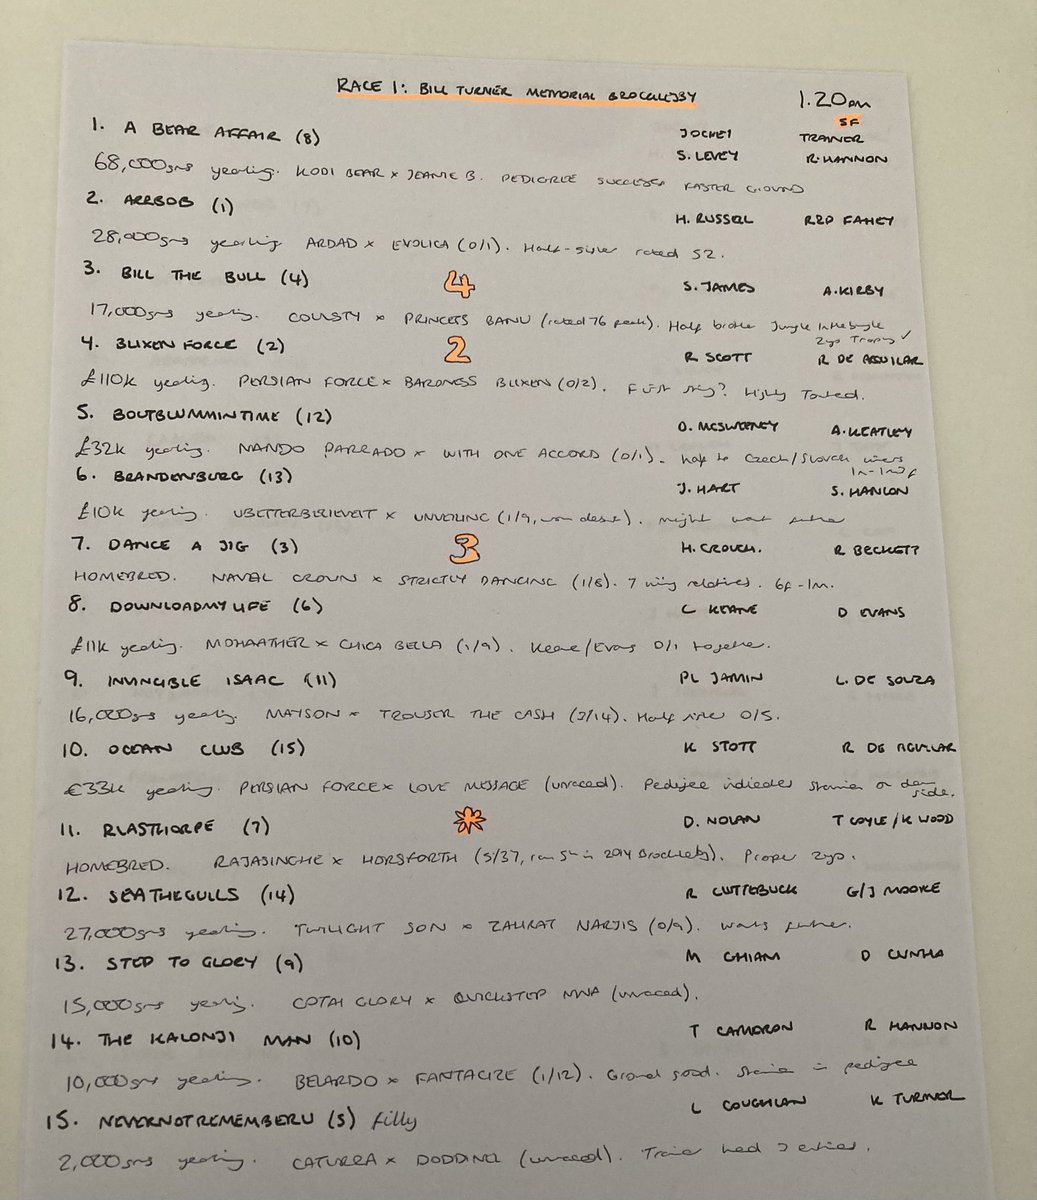 RACE 1: BILL TURNER MEMORIAL BROCKLESBY 1.20pm
5F
JOCKEY TRAINER
1. A BEAR AFFAIR (8) S. LEVEY R. HANNON
68,000gns yearling. KODI BEAR x JEANIE B. PEDIGREE SUCCESSES FASTER GROUND
2. ARRBOB (1) H. RUSSELL R FAHEY
28,000gns yearling ARDAD x EVOLICA (0/1). Half-sister rated 52.
3. BILL THE BULL (4) 4 S. JAMES A. KIRBY
17,000gns yearling. COULSTY x PRINCESS BANU (rated 76 peak). Half brother Jungle Inthebungle
2yo Trophy ✓
4. BLIXEN FORCE (2) 2 R SCOTT R DE AGUILAR
£110K yearling. PERSIAN FORCE x BARONESS BLIXEN (0/2). First string? Highly Touted.
5. BOUTBLUMMINTIME (12) O. MCSWEENEY A. KEATLEY
£32K yearling. NANDO PARRADO x WITH ONE ACCORD (0/1). half to Czech/Slovak winners
1m-1m2f
6. BRANDENBURG (13) J. HART S. HANLON
£10K yearling. UBETTERBELIEVEIT x UNVEILING (1/9, won debut). might want further
7. DANCE A JIG (3) 3 H. CROUCH. R BECKETT
HOMEBRED. NAVAL CROWN x STRICTLY DANCING (1/8). 7 winning relatives. 6f-1m.
8. DOWNLOADMYLIFE (6) C KEANE D EVANS
£11K yearling. MOHAATHER x CHICA BELLA (1/9). Keane/Evans 0/1 together.
9. INVINCIBLE ISAAC (11) PL JAMIN L. DE SOUZA
16,000gns yearling. MAYSON x TROUSER THE CASH (3/14). Half sister 0/5.
10. OCEAN CLUB (15) K STOTT R DE AGUILAR
€33K yearling. PERSIAN FORCE x LOVE MESSAGE (unraced). Pedigree indicates stamina on dam
side.
11. RLASTHORPE (7) * D. NOLAN T COYLE/K WOOD
HOMEBRED. RAJASINGHE x HORSFORTH (5/37, ran 5th in 2014 Brocklesby). Proper 2yo.
12. SEATHEGULLS (14) R CLUTTERBUCK G/J MOORE
27,000gns yearling. TWILIGHT SON x ZAHRAT NARJIS (0/9). wants further.
13. STEP TO GLORY (9) M GHIANI D CUNHA
15,000gns yearling. COTAI GLORY x QUICKSTEP (unraced).
14. THE KALONJI MAN (10) T CAMERON R HANNON
10,000gns yearling. BELARDO x FANTACIZE (1/12). Ground good. Stamina in pedigree
15. NEVERNOTREMEMBERU (5) filly L COUGHLAN K TURNER
2,000gns yearling. CATURRA x DODDINGL (unraced). Trainer had 3 entries.